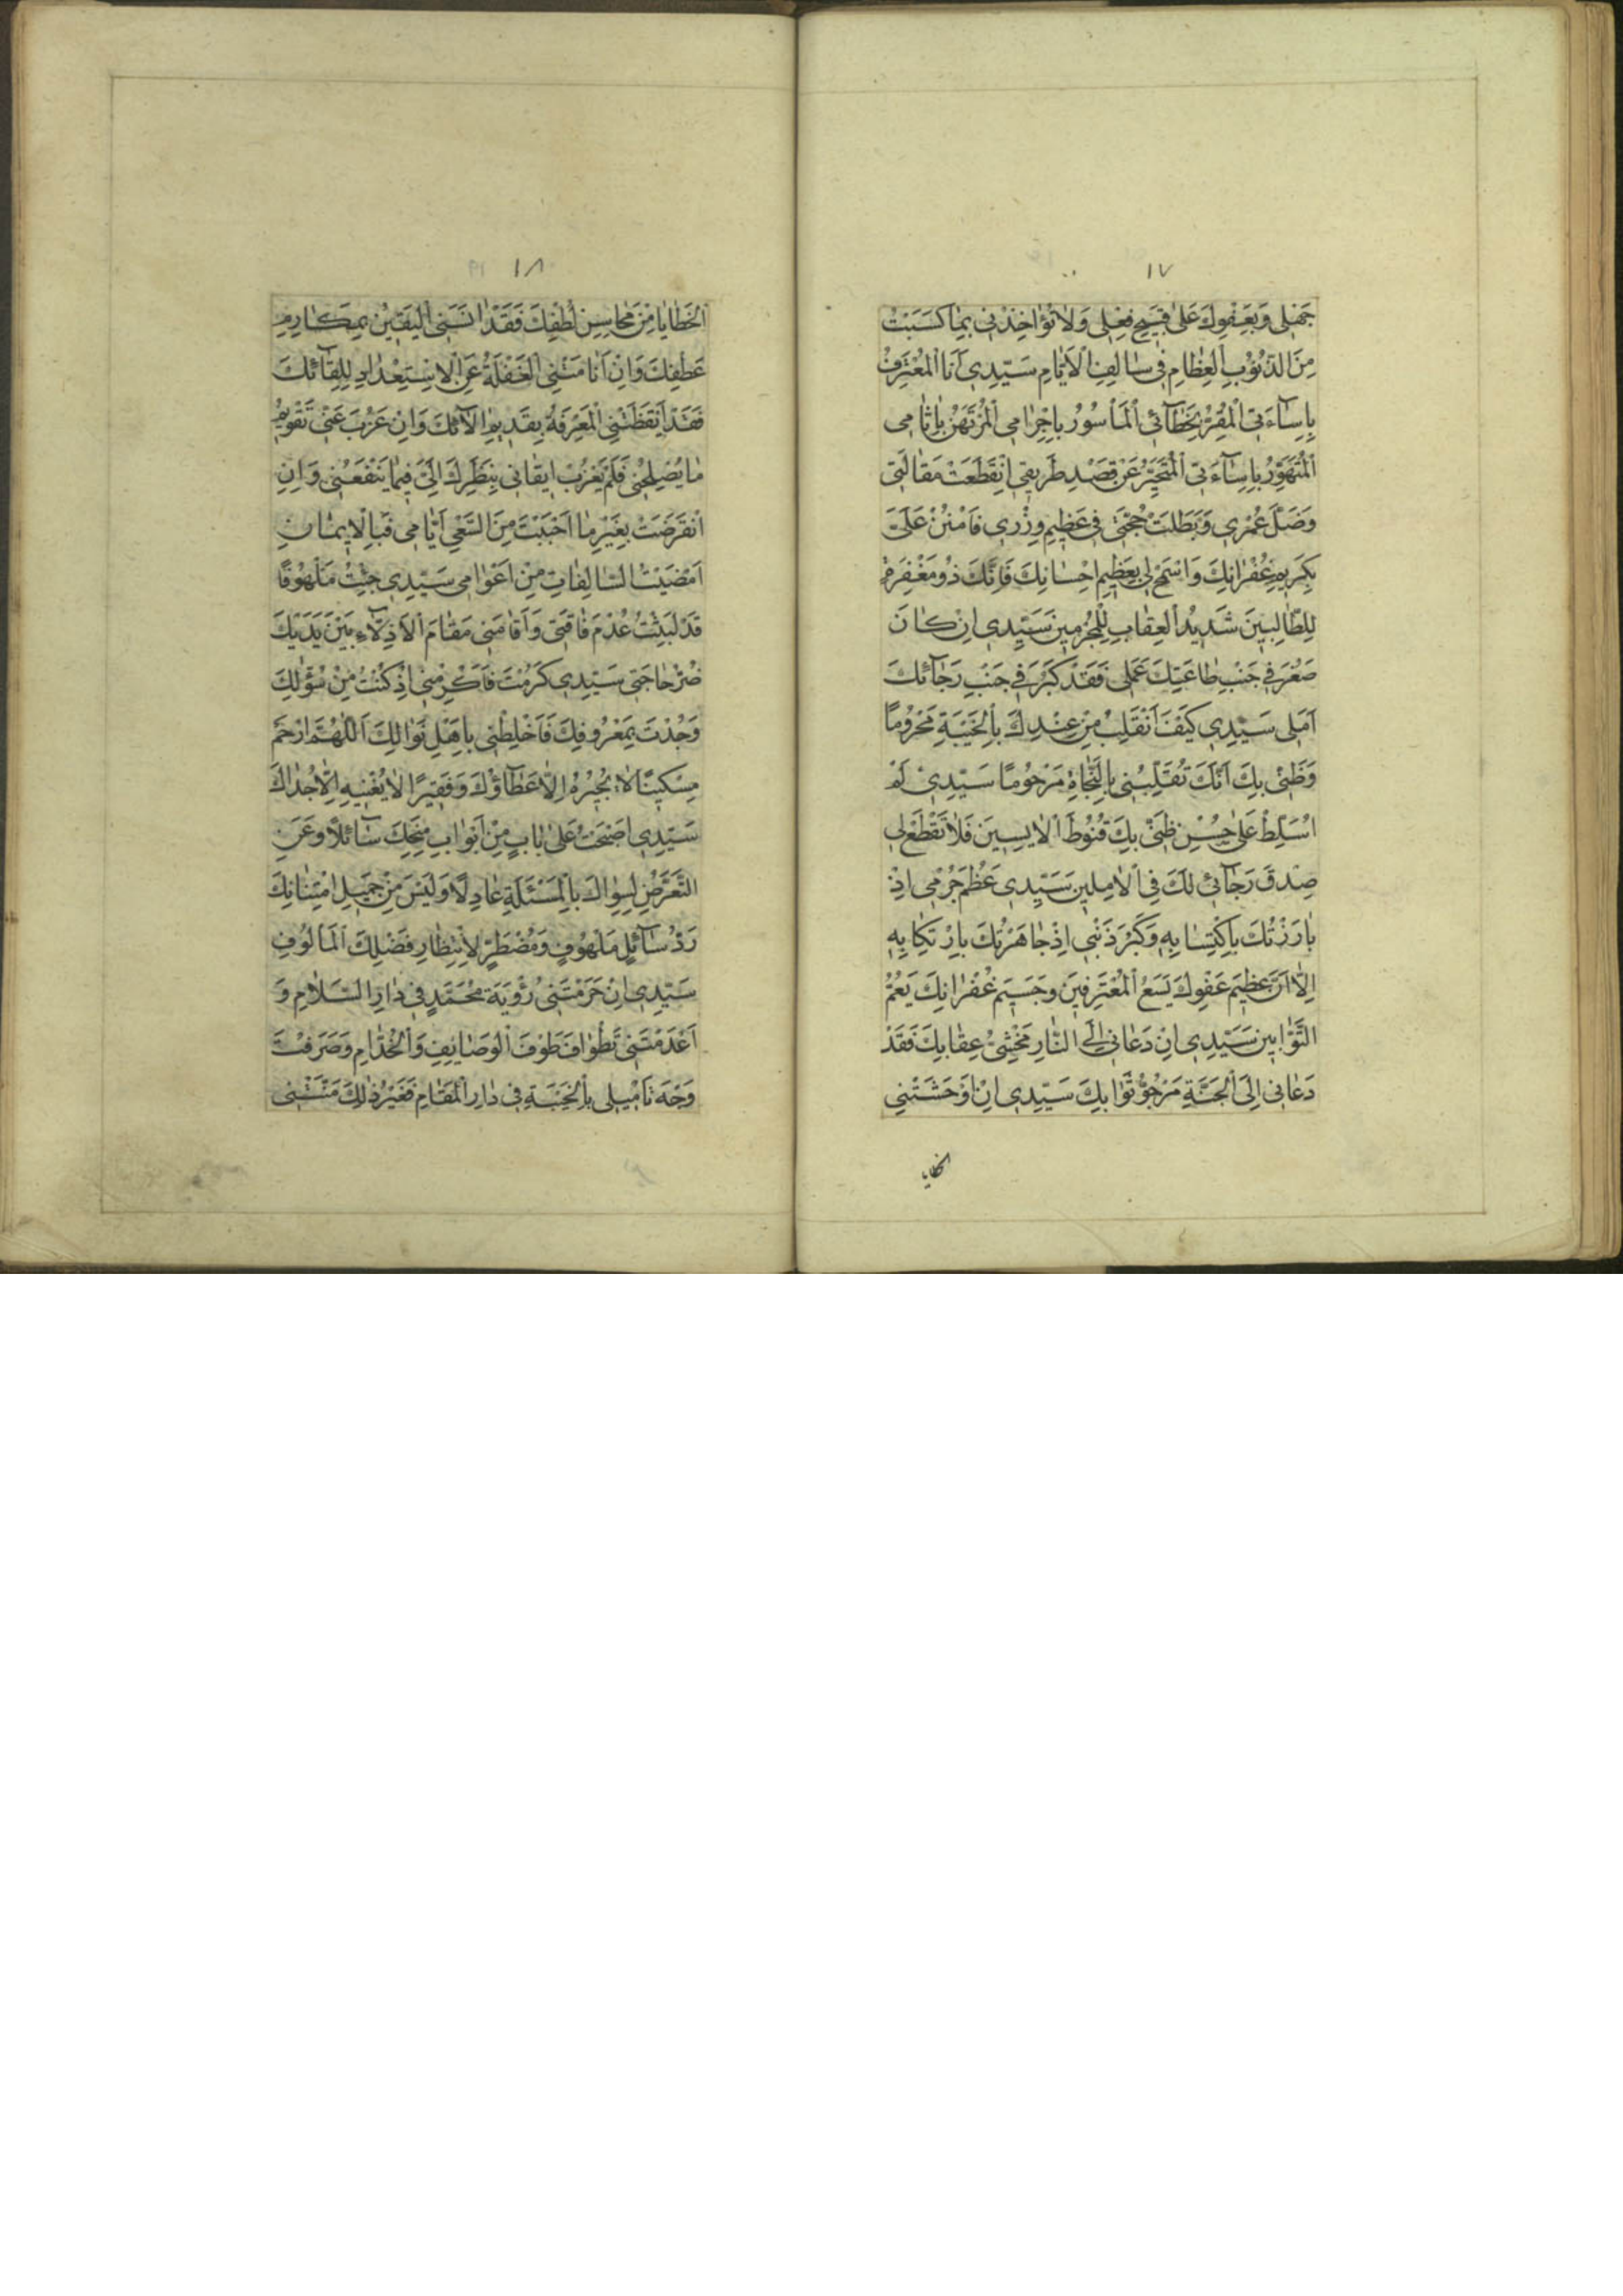 ١٧
جَهْلِی وَبِعَفْوِكَ عَلٰی قَبِیحِ فِعْلِی وَلَا تُؤَاخِذْنِی بِمَا كَسَبْتُ
مِنَ الذُّنُوْبِ الْعِظَامِ فِی سَالِفِ الْاَیَّامِ سَیِّدِی اَنَا الْمُعْتَرِفُ
بِاِسَآءَتِی الْمُقِرُّ بِخَطَآئِی الْمَأْسُوْرُ بِاِجْرَامِی الْمُرْتَهَنُ بِاٰثَامِی
الْمُتَهَوِّرُ بِاِسَآءَتِی الْمُتَحَیِّرُ عَنْ قَصْدِ طَرِیقِی اِنْقَطَعَتْ مَقَالَتِی
وَضَلَّ عُمْرِی وَبَطَلَتْ حُجَّتِی فِی عَظِیمِ وِزْرِی فَامْنُنْ عَلَیَّ
بِكَرِیمِ غُفْرَانِكَ وَاسْمَحْ لِی بِعَظِیمِ اِحْسَانِكَ فَاِنَّكَ ذُو مَغْفِرَةٍ
لِلطَّالِبِینَ شَدِیدُ الْعِقَابِ لِلْمُجْرِمِینَ سَیِّدِی اِنْ كَانَ
صَغُرَ فِی جَنْبِ طَاعَتِكَ عَمَلِی فَقَدْ كَبُرَ فِی جَنْبِ رَجَآئِكَ
اَمَلِی سَیِّدِی كَیْفَ اَنْقَلِبُ مِنْ عِنْدِكَ بِالْخَیْبَةِ مَحْرُوْمًا
وَظَنِّی بِكَ اَنَّكَ تُقَلِّبُنِی بِالنَّجَاةِ مَرْحُوْمًا سَیِّدِی لَمْ
اُسَلِّطْ عَلٰی حُسْنِ ظَنِّی بِكَ قُنُوْطَ الْاٰیِسِینَ فَلَا تَقْطَعْ لِی
صِدْقَ رَجَآئِی لَكَ فِی الْاٰمِلِینَ سَیِّدِی عَظُمَ جُرْمِی اِذْ
بَارَزْتُكَ بِاكْتِسَابِهِ وَكَبُرَ ذَنْبِی اِذْ جَاهَرْتُكَ بِارْتِكَابِهِ
اِلَّا اَنَّ عَظِیمَ عَفْوِكَ یَسَعُ الْمُعْتَرِفِینَ وَجَسِیمَ غُفْرَانِكَ یَعُمُّ
التَّوَّابِینَ سَیِّدِی اِنْ دَعَانِی اِلَی النَّارِ مَخْشِیُّ عِقَابِكَ فَقَدْ
دَعَانِی اِلَی الْجَنَّةِ مَرْجُوُّ ثَوَابِكَ سَیِّدِی اِنْ اَوْحَشَتْنِی
الخطایا
١٨
الْخَطَایَا مِنْ مَحَاسِنِ لُطْفِكَ فَقَدْ اٰنَسَنِی الْیَقِیْنُ بِمَكَارِمِ
عَطْفِكَ وَاِنْ اَنَامَتْنِی الْغَفْلَةُ عَنِ الْاِسْتِعْدَادِ لِلِقَآئِكَ
فَقَدْ اَیْقَظَتْنِی الْمَعْرِفَةُ بِقَدِیمِ اٰلَآئِكَ وَاِنْ عَزُبَ عَنِّی تَقْوِیْمُ
مَا یُصْلِحُنِی فَلَمْ یَعْزُبْ اِیقَانِی بِنَظَرِكَ اِلَیَّ فِیمَا یَنْفَعُنِی وَاِنِ
انْقَرَضَتْ بِغَیْرِ مَا اَحْبَبْتَ مِنَ السَّعْیِ اَیَّامِی فَبِالْاِیمَانِ
اَمْضَیْتُ السَّالِفَاتِ مِنْ اَعْوَامِی سَیِّدِی جِئْتُ مَلْهُوْفًا
قَدْ لَبِسْتُ عُدْمَ فَاقَتِی وَاَقَامَنِی مَقَامَ الْاَذِلَّاءِ بَیْنَ یَدَیْكَ
ضُرُّ حَاجَتِی سَیِّدِی كَرُمْتَ فَاَكْرِمْنِی اِذْ كُنْتُ مِنْ سُؤَّالِكَ
وَجُدْتَ بِمَعْرُوفِكَ فَاَخْلِطْنِی بِاَهْلِ نَوَالِكَ اَللّٰهُمَّ ارْحَمْ
مِسْكِینًا لَا یُجِیْرُهُ اِلَّا عَطَآؤُكَ وَفَقِیْرًا لَا یُغْنِیهِ اِلَّا جُدَاكَ
سَیِّدِی اَصْبَحْتُ عَلٰی بَابٍ مِنْ اَبْوَابِ مِنَحِكَ سَآئِلًا وَعَنِ
التَّعَرُّضِ لِسِوَاكَ بِالْمَسْئَلَةِ عَادِلًا وَلَیْسَ مِنْ جَمِیلِ امْتِنَانِكَ
رَدُّ سَآئِلٍ مَلْهُوْفٍ وَمُضْطَرٍّ لِاِنْتِظَارِ فَضْلِكَ الْمَأْلُوْفِ
سَیِّدِی اِنْ حَرَمْتَنِی رُؤْیَةَ مُحَمَّدٍ فِی دَارِ السَّلَامِ وَ
اَعْدَمْتَنِی تَطْوَافَ طَوْفَ الْوَصَایِفِ وَالْخُدَّامِ وَصَرَفْتَ
وَجْهَ تَأْمِیْلِی بِالْخَیْبَةِ فِی دَارِ الْمَقَامِ فَغَیْرُ ذٰلِكَ مَنَّتْنِی